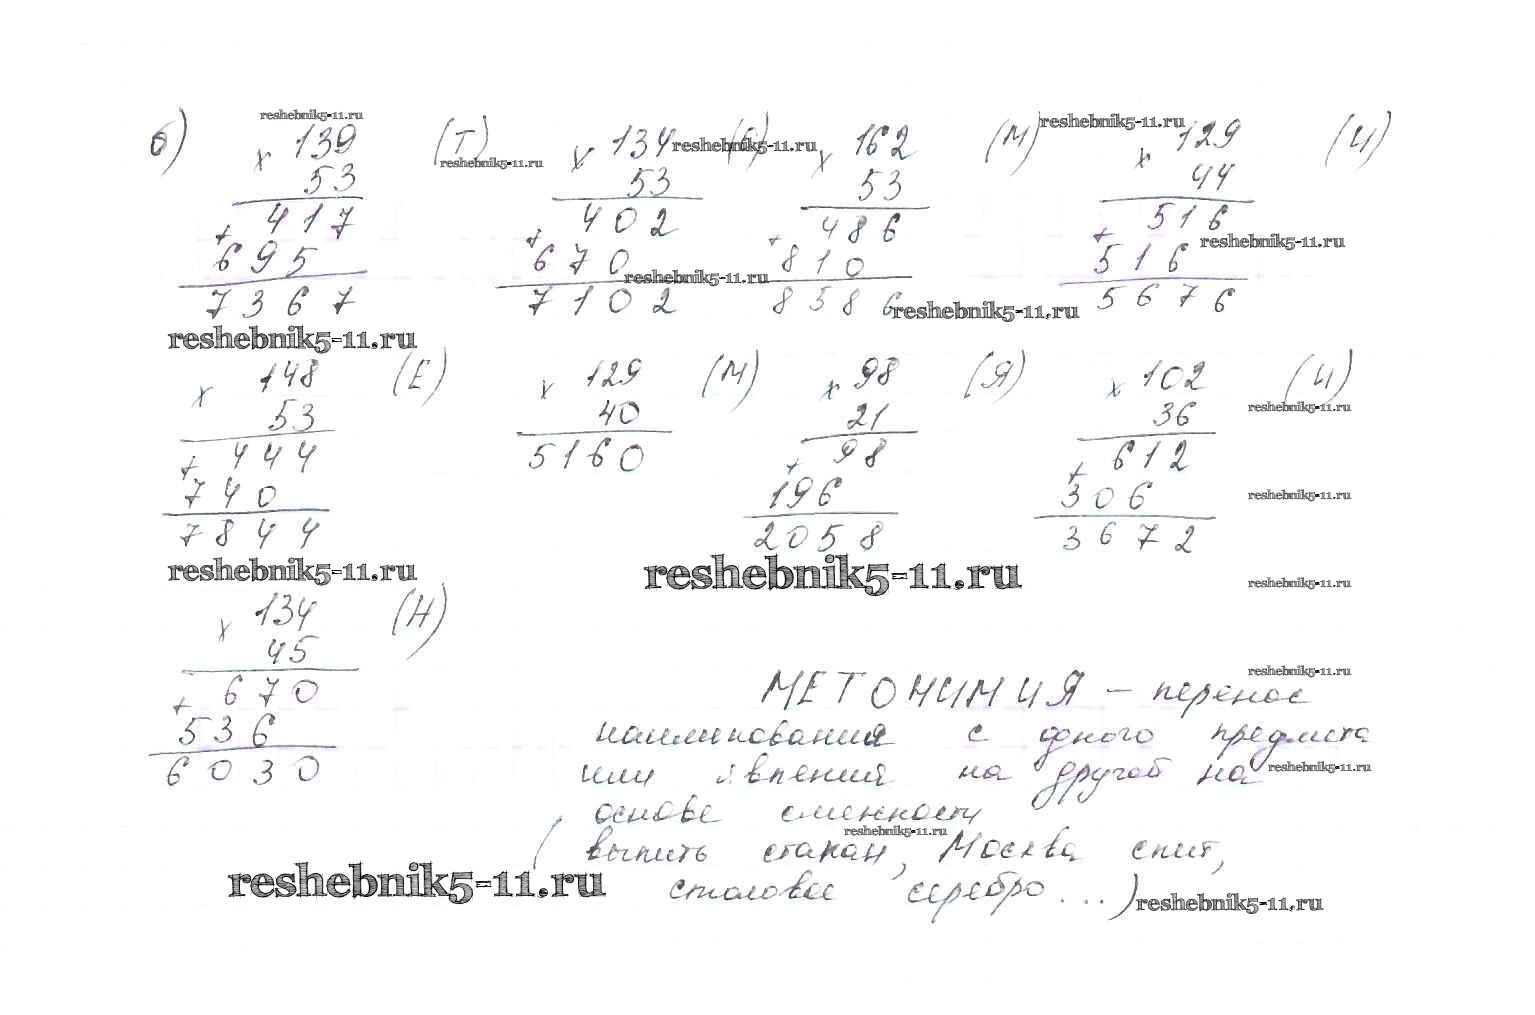 reshebnik5-11.ru
б) × 139 (Т) × 134 (О) × 162 (М) × 129 (И)
reshebnik5-11.ru reshebnik5-11.ru reshebnik5-11.ru
53 53 53 44
+ 417 + 402 + 486 + 516
reshebnik5-11.ru
695 670 810 516
reshebnik5-11.ru
7367 7102 8586 5676
reshebnik5-11.ru
reshebnik5-11.ru
× 148 (Е) × 129 (М) × 98 (Я) × 102 (И)
53 40 21 36
reshebnik5-11.ru
+ 444 5160 + 98 + 612
740 196 306
reshebnik5-11.ru
7844 2058 3672
reshebnik5-11.ru reshebnik5-11.ru
reshebnik5-11.ru
× 134 (Н)
45
+ 670
536
6030
reshebnik5-11.ru
МЕТОНИМИЯ – перенос
наименования с одного предмета
или явления на другой на
reshebnik5-11.ru
основе смежности
reshebnik5-11.ru
(выпить стакан, Москва спит,
столовое серебро ...)
reshebnik5-11.ru reshebnik5-11.ru